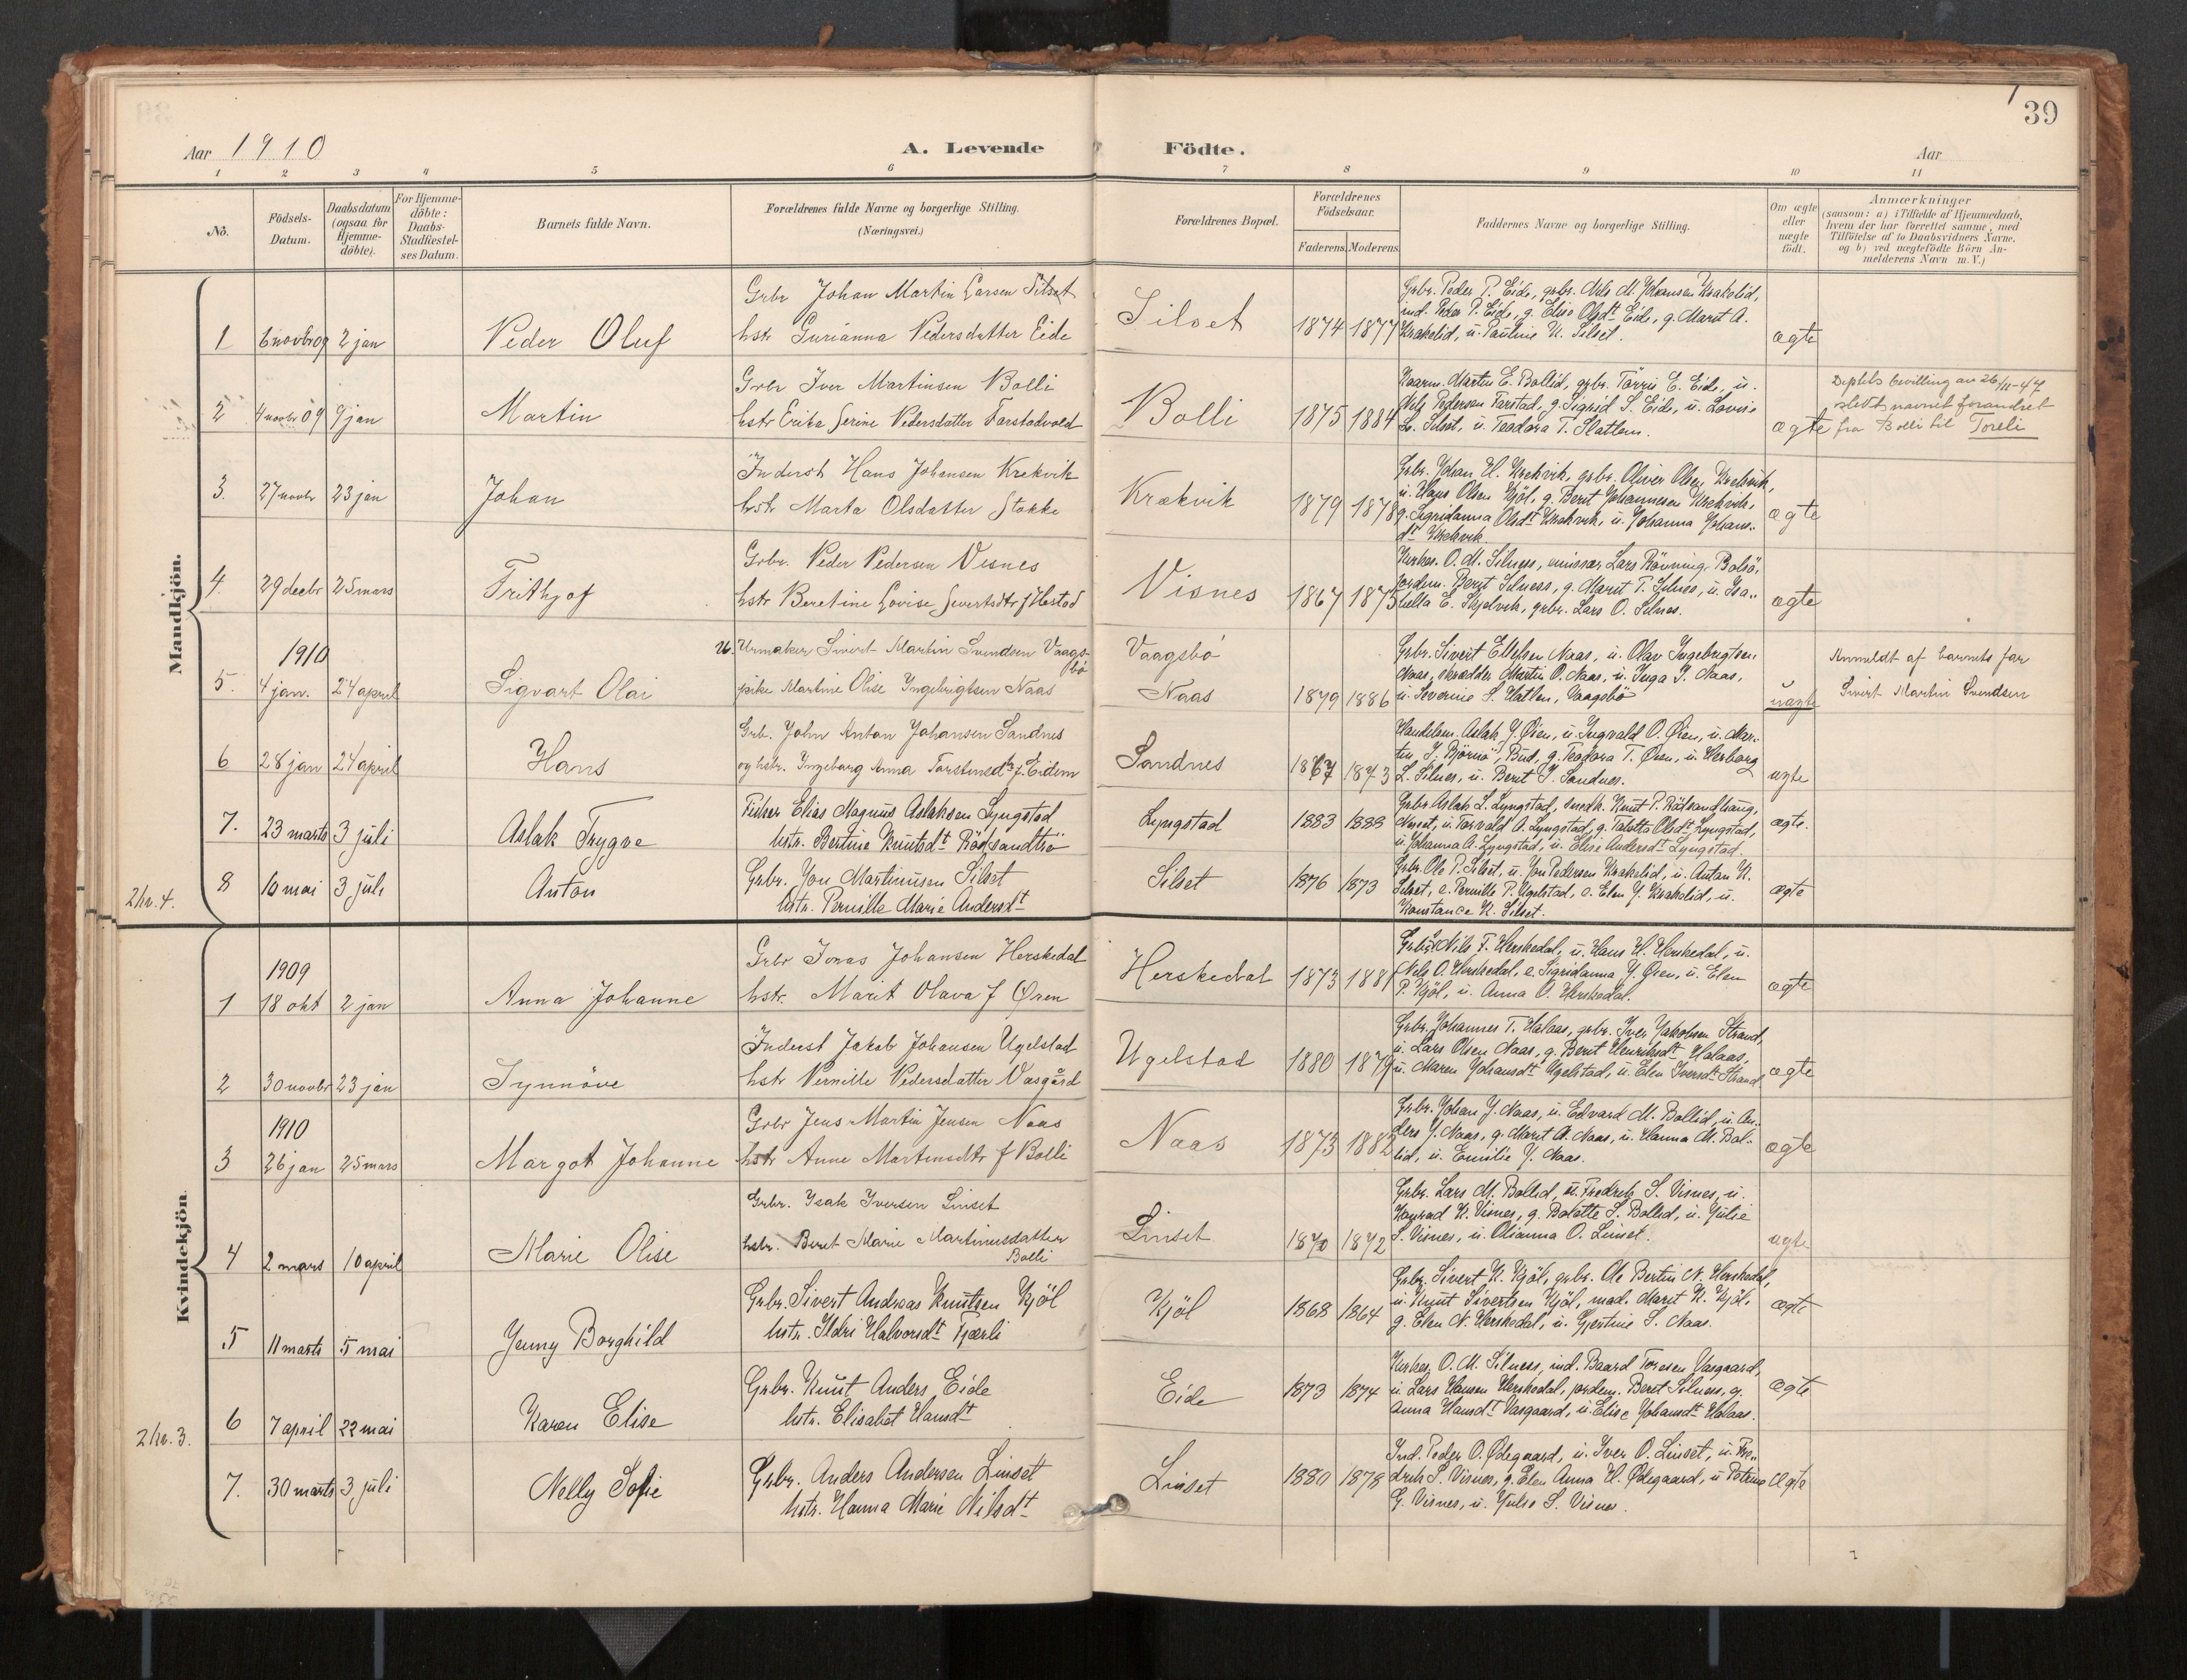 39
Aar 1910
A. Levende Födte.
Aar
1 2 3 4 5 6 7 8 9 10 11
Nō.
Födsels-Datum.
Daabsdatum (ogsaa for Hjemme-döbte).
For Hjemme-döbte: Daabs-Stadfæstel-ses Datum.
Barnets fulde Navn.
Forældrenes fulde Navne og borgerlige Stilling.
(Næringsvei.)
Forældrenes Bopæl.
Forældrenes Födselsaar.
Faderens. Moderens.
Faddernes Navne og borgerlige Stilling.
Om ægte eller uægte födt.
Anmærkninger
(saasom: a) i Tilfælde af Hjemmedaab, hvem der har forrettet samme, med Tilföielse af to Daabsvidners Navne, og b) ved uægtefödte Börn An-melderens Navn m. V.)
Mandkjön.
1 6 novbr 09 2 jan Peder Oluf
Grbr Johan Martin Larsen Silset
hstr Gurianna Pedersdatter Eide
Silset 1874 1877
Grbr. Peder P. Eide, grbr. Nils M. Johansen Krakelid,
ind. Peder P. Eide, g. Elise Olsdt Eide, g. Marit A.
Krakelid, u. Pauline K. Silset.
ægte
2 4 novbr 09 9 jan Martin
Grbr Iver Martinsen Bolli
hstr Erika Serine Pedersdatter Farstadvold
Bolli 1875 1884
Kaarm. Martin E. Bollid, grbr. Törris E. Eide, u.
Nils Pedersen Farstad, g. Sigrid S. Eide, u. Lovise
L. Silset, u. Teodora T. Slatlem.
ægte
Deptets bevilling av 26/11-47
slektsnavnet forandret
fra Bolli til Toreli
3. 27 novbr 23 jan Johan
Inderst Hans Johansen Krekvik
hstr Marta Olsdatter Stokke
Krækvik 1879 1878
Grbr. Johan H. Krekvik, grbr. Oliver Olsen Krekvik,
u. Hans Olsen Kjöl, g. Berit Johannesen Krekvik,
g. Sigridanna Olsdt Krekvik, u. Johanna Johans-
dt Krekvik.
ægte
4. 29 decbr 25 mars Frithjof
Grbr. Peder Pedersen Visnes
hstr Beretine Lovise Sivertsdtr f Hestad
Visnes 1867 1875
Kirkes. O. M. Silness, emissær Lars Rövning, Bolsö,
jordem. Berit Silness, g. Marit T. Silnes, u. Isa-
bella E. Skjelvik, grbr. Lars O. Silnes.
ægte
1910
5. 4 jan. 24 april Sigvart Olai
U. Urmaker Sivert Martin Svendsen Vaags-
bö
pike Martine Olise Ingebrigtsen Naas
Vaagsbö
Naas 1879 1886
Grbr. Sivert Ellefsen Naas, u. Olav Ingebrigtsen
Naas, skrædder Martin O. Naas, u. Inga I. Naas,
u. Severine S. Hatlen, Vaagsbö
uægte
Anmeldt af barnets far
Sivert Martin Svendsen
6 28 jan 24 april Hans
Grb. John Anton Johansen Sandnes
og hstr. Ingeborg Anna Torstensdtr f. Eidem
Sandnes 1867 1873
Handelsm. Aslak J. Øien, u. Ingvald O. Øien, u. Mar-
tin J. Björnö, Bud, g. Teodora T. Øien, u. Herborg
L. Silnes, u. Berit J. Sandnes.
ægte
7. 23 marts 3 juli Aslak Trygve
Fisker Elias Magnus Aslaksen Lyngstad
hstr. Bertine Knutsdt Rödsandtrö
Lyngstad 1883 1888
Grbr. Aslak L. Lyngstad, smedk. Knut P. Rödsandhaug,
u. Torvald A. Lyngstad, g. Taletta Olsdt Lyngstad,
u. Johanna A. Lyngstad, u. Elise Andersdt Lyngstad.
ægte.
2 kr. 4.
8 10 mai 3 juli Anton
Grbr. Jon Martinusen Silset
hstr. Pernille Marie Andersdt
Silset 1876 1873
Grbr. Ole P. Silset, u. Jon Pedersen Krakelid, u. Anton K.
Silset, e. Pernille P. Ugelstad, e. Elen J. Krakelid, u.
Konstance K. Silset.
ægte
Kvindekjön.
1909
1 18 okt 2 jan Anna Johanne
Grbr Jonas Johansen Herskedal
hstr. Marit Olava f Øren
Herskedal 1873 1881
Grbr. Nils F. Herskedal, u. Hans H. Herskedal, u.
Nils O. Herskedal, e. Sigridanna J. Øien, u. Elen
P. Kjöl, u. Anna O. Herskedal.
ægte
2 30 novbr 23 jan Synnöve
Inderst Jakob Johansen Ugelstad
hstr Pernille Pedersdatter Vasgård
Ugelstad 1880 1879
Grbr. Johannes T. Halaas, grbr. Iver Jakobsen Strand,
u. Lars Olsen Naas, g. Berit Henriksdt Halaas,
u. Maren Johansdt Ugelstad, u. Elen Iversdt Strand
ægte
1910
3 26 jan 25 mars Margot Johanne
Grbr Jens Martin Jensen Naas
hstr Anne Martinsdtr f Bolli
Naas 1873 1882
Grbr. Johan J. Naas, u. Edvard M. Bollid, u. An-
ders J. Naas, g. Marit A. Naas, u. Hanna M. Bol-
lid, u. Emilie J. Naas.
ægte
4 2 mars 10 april Marie Olise
Grbr. Isak Iversen Linset
hstr. Beret Marie Martinusdatter
Bolli
Linset 1870 1872
Grbr. Lars M. Bollid, u. Fredrik S. Visnes, u.
Konrad K. Visnes, g. Boletta S. Bollid, u. Julie
S. Visnes, u. Olianna O. Linset.
ægte
5 11 marts 5 mai Jenny Borghild
Grbr. Sivert Andreas Knutsen Kjöl
hstr. Ildri Halvorsdt Tjærli
Kjöl 1868 1864
Grbr. Sivert K. Kjöl, grbr. Ole Bertin N. Herskedal,
u. Knut Sivertsen Kjöl, mad. Marit K. Kjöl,
g. Elen N. Herskedal, u. Gjertine S. Naas.
ægte
6 7 april 22 mai Karen Elise
Grbr. Knut Anders Eide
hstr. Elisabet Hansdt
Eide 1873 1874
Kirkes. O. M. Silness, ind. Baard Toresen Vasgaard,
u. Lars Hansen Herskedal, jordem. Beret Silness, g.
Anna Hansdt Vasgaard, u. Elise Johansdt Halaas.
ægte
2 kr. 3.
7. 30 marts 3 juli Nelly Sofie
Grbr. Anders Andersen Linset
hstr. Hanna Marie Nilsdt
Linset 1880 1878
Ind. Peder O. Ødegaard, u. Iver O. Linset, u. Fre-
drik S. Visnes, g. Elen Anna H. Ødegaard, u. Petrine
G. Visnes, u. Julie S. Visnes.
ægte